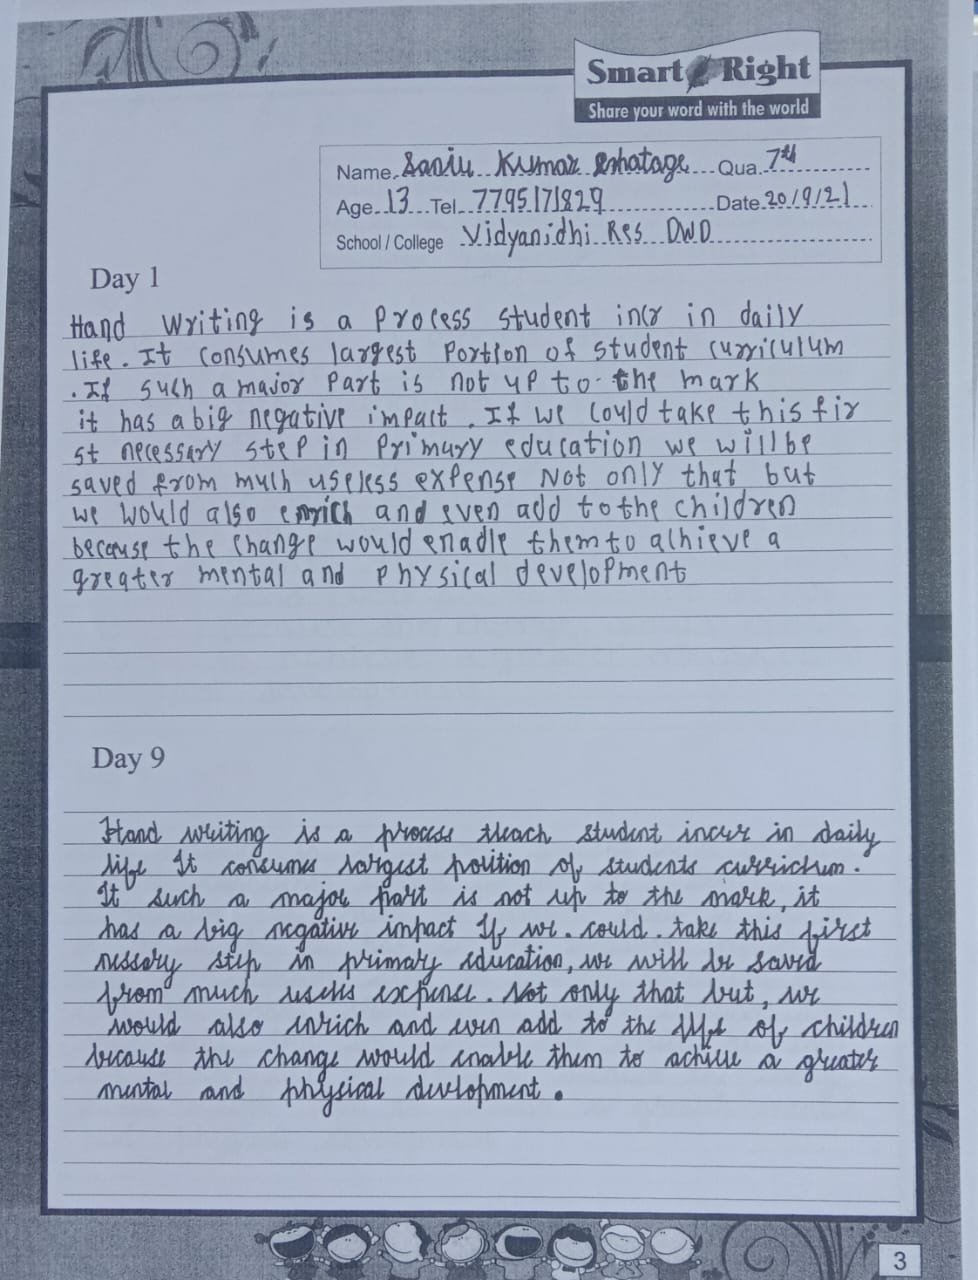 Smart Right
Share your word with the world
Name Sanju Kumar Qua. 7th
Age 13 Tel. 7795171829 Date 20/9/21
School / College Vidyanidhi Res DWD
Day 1
Hand Writing is a Process student incr in daily
life. It consumes largest Portion of student curriculum
. If such a major Part is not up to the mark
it has a big negative impact. If we could take this fir
st necessary step in Primary education we will be
saved from much useless expense Not only that but
we would also enrich and even add to the children
because the change would enadle them to achieve a
greater mental and Physical development
Day 9
Hand writing is a process student incur in daily
life It consumes largest portion of students curriclum.
It such a major part is not up to the mark, it
has a big negative impact If we. could. take this first
nessary step in primary education, we will be saved
from much usells expense. Not only that but, we
would also inrich and even add to the life of children
because the change would enable them to achive a greater
mental and physical development.
3